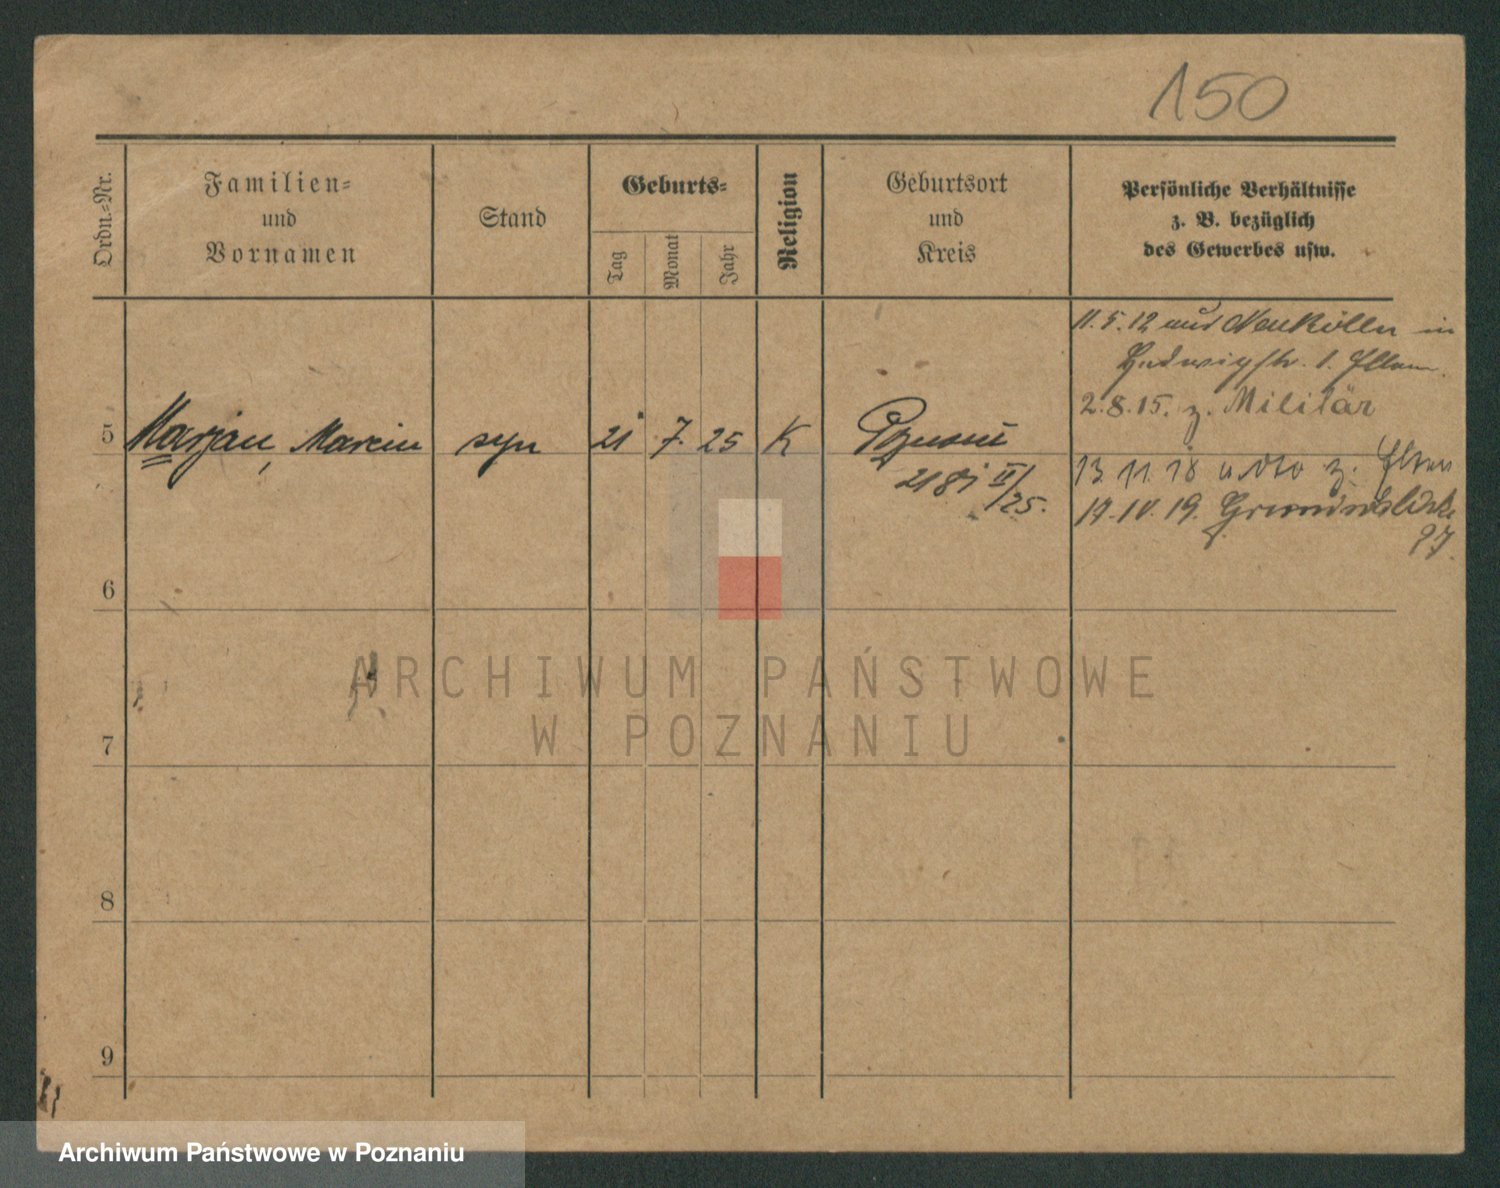 150
Ordn.-Nr.
Familien-
und
Vornamen
Stand
Geburts-
Tag
Monat
Jahr
Religion
Geburtsort
und
Kreis
Persönliche Verhältnisse
z. B. bezüglich
des Gewerbes usw.
11.5.12 aus Neukölln in
Ludwigstr. 1.
2.8.15. z. Militär
5 Marjan, Marcin syn 21 7. 25 K Poznań
13.11.18 z.
218i II/25.
19.IV.19.
6
ARCHIWUM PAŃSTWOWE
W POZNANIU
7
8
9
Archiwum Państwowe w Poznaniu